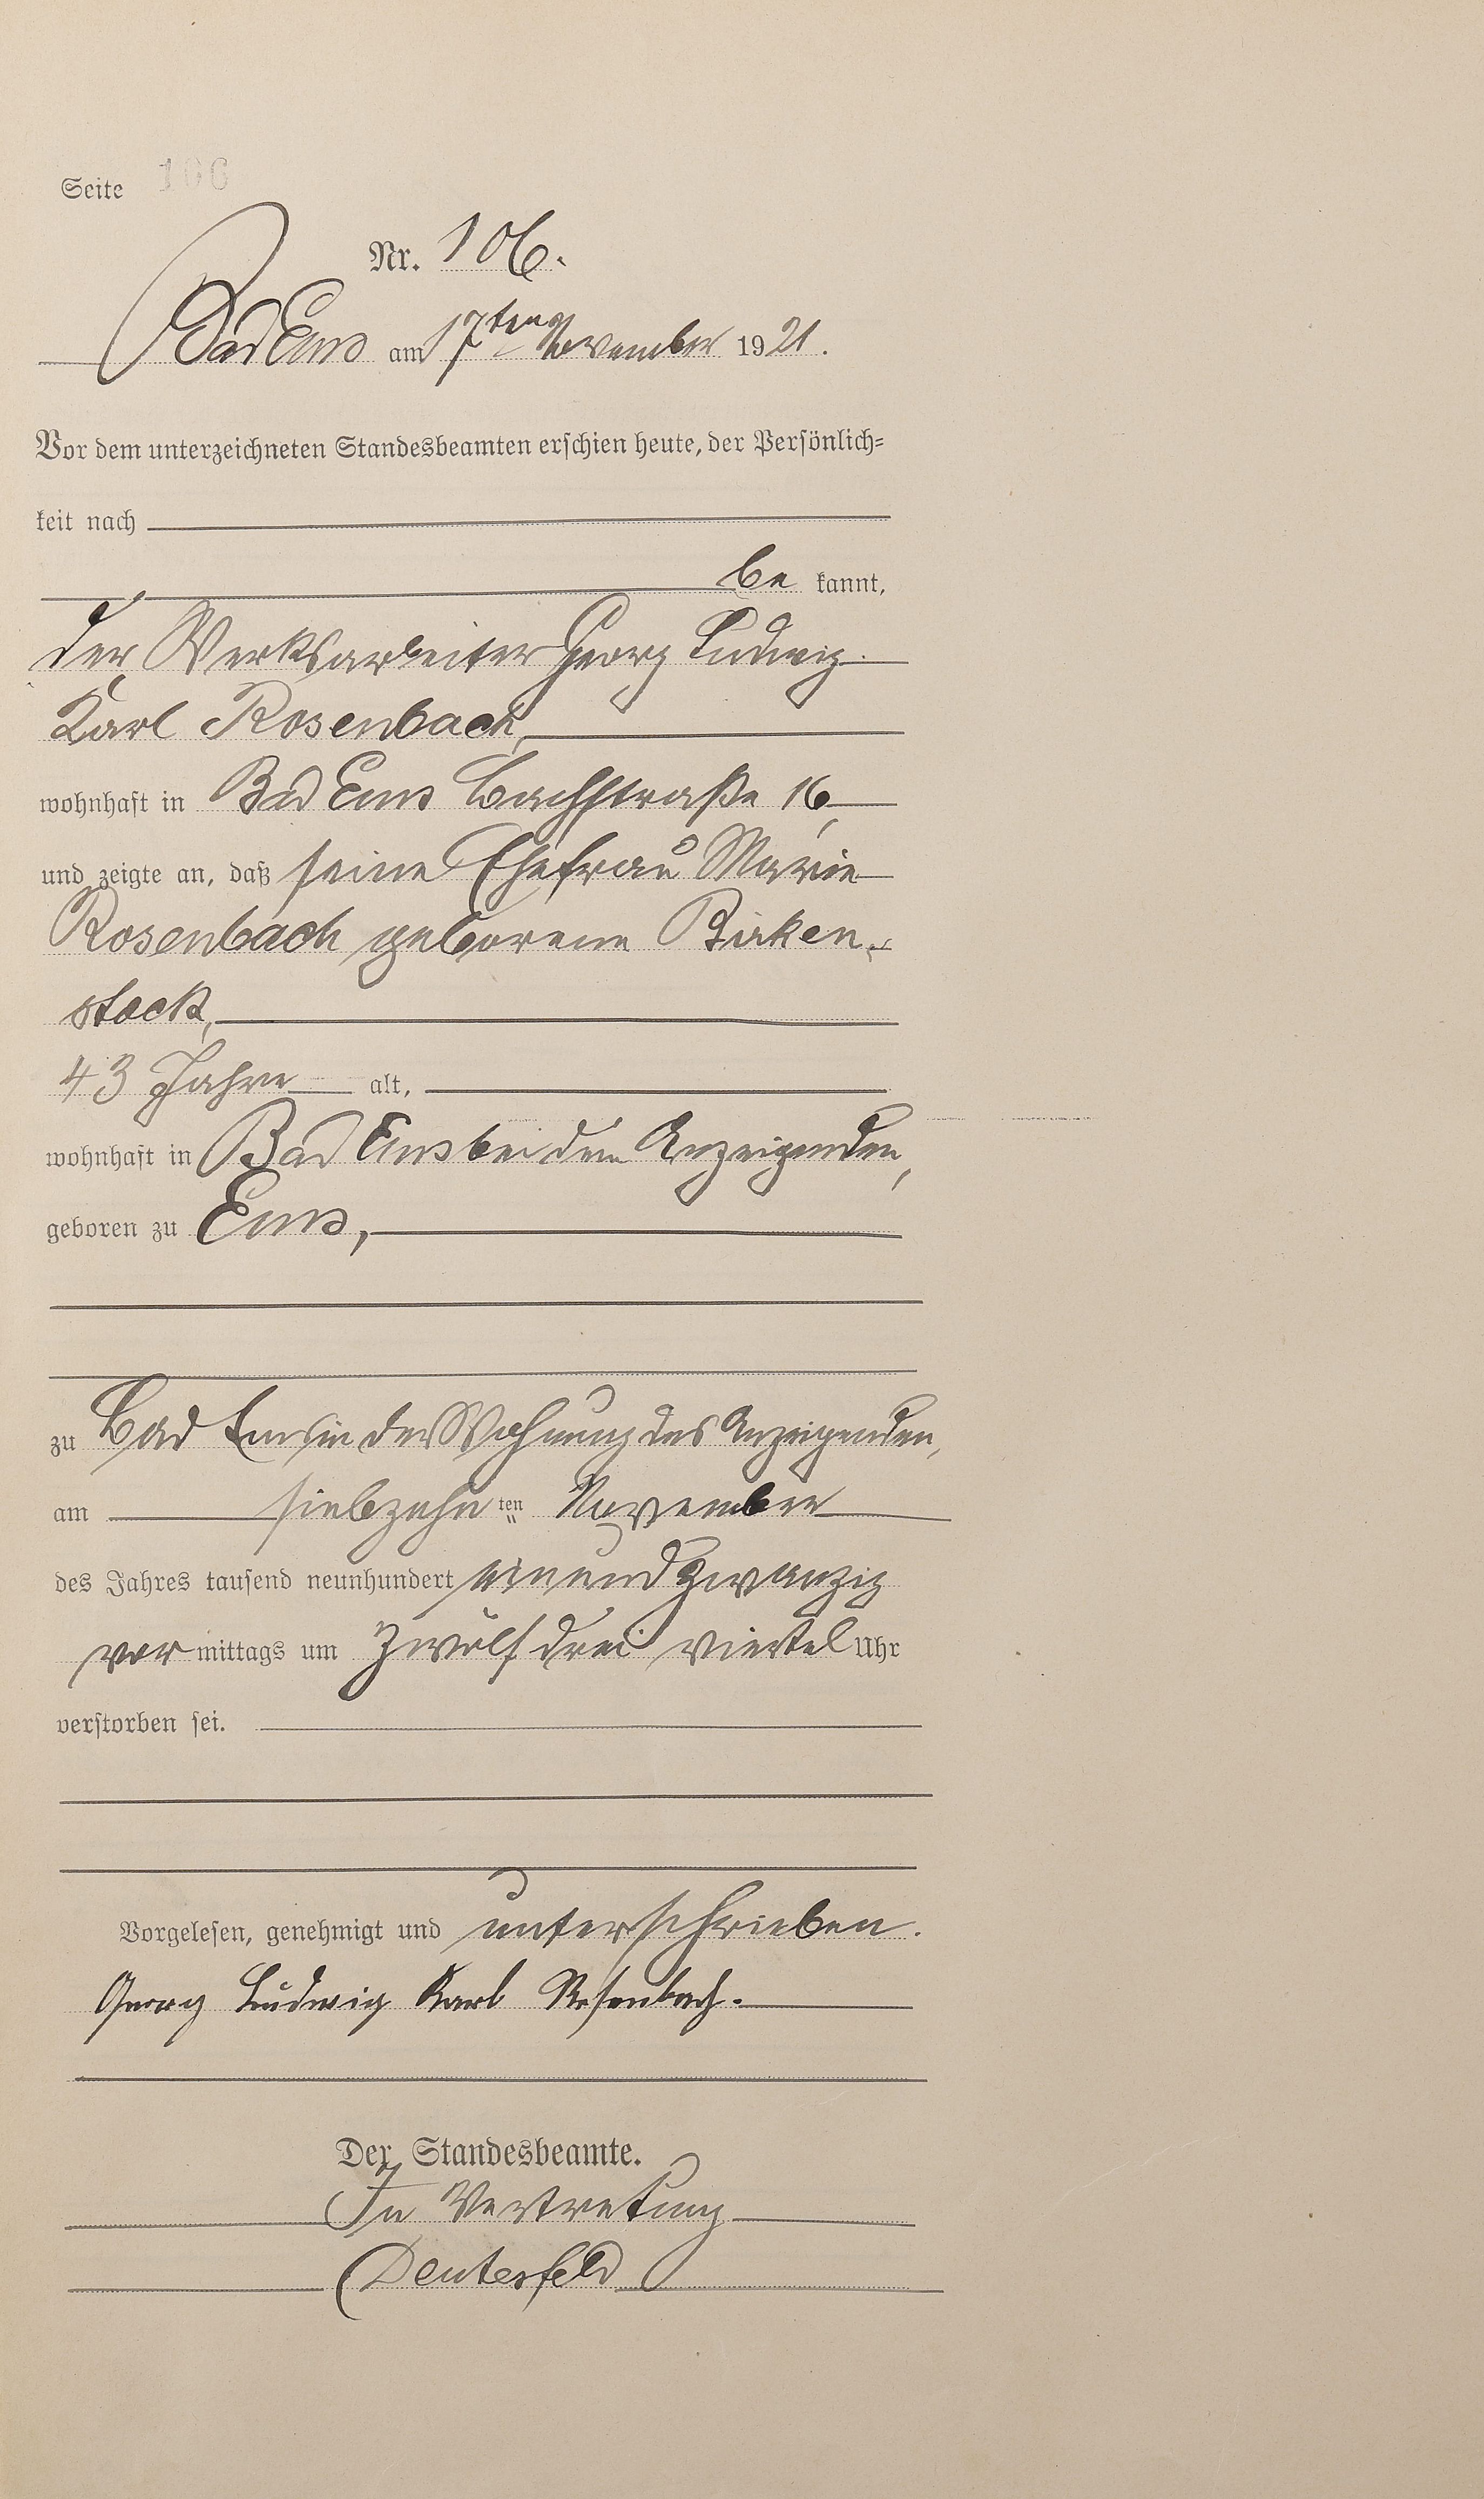 Seite 106
Nr. 106.
Bad Ems am 17ten November 1921.
Vor dem unterzeichneten Standesbeamten erschien heute, der Persönlich=
keit nach
be kannt,
der Werksarbeiter Georg Ludwig
Karl Rosenbach,
wohnhaft in Bad Ems Bachstraße 16,
und zeigte an, daß seine Ehefrau Marie
Rosenbach geborene Birken-
stock,
43 Jahre alt,
wohnhaft in Bad Ems bei dem Anzeigenden,
geboren zu Ems,
zu Bad Ems in der Wohnung des Anzeigenden,
am siebzehn ten November
des Jahres tausend neunhundert einundzwanzig
vor mittags um zwölf drei viertel Uhr
verstorben sei.
Vorgelesen, genehmigt und unterschrieben.
Georg Ludwig Karl Rosenbach.
Der Standesbeamte.
In Vertretung
Deutesfeld